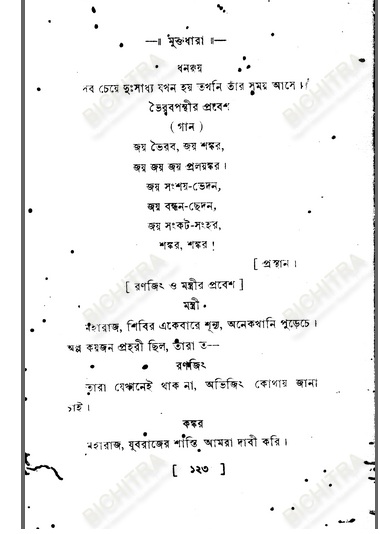 —॥ মুক্তধারা ॥—
ধনঞ্জয়
সব চেয়ে দুঃসাধ্য যখন হয় তখনি তাঁর সময় আসে।
ভৈরবপন্থীর প্রবেশ
( গান )
জয় ভৈরব, জয় শঙ্কর,
জয় জয় জয় প্রলয়ঙ্কর।
জয় সংশয়-ভেদন,
জয় বন্ধন-ছেদন,
জয় সংকট-সংহর,
শঙ্কর, শঙ্কর!
[ প্রস্থান।
[ রণজিৎ ও মন্ত্রীর প্রবেশ ]
মন্ত্রী
মহারাজ, শিবির একেবারে শূন্য, অনেকখানি পুড়েচে।
অল্প কয়জন প্রহরী ছিল, তারা ত—
রণজিৎ
তারা যেখানেই থাক না, অভিজিৎ কোথায় জানা
চাই।
কঙ্কর
মহারাজ, যুবরাজের শাস্তি আমরা দাবী করি।
[ ১২৩ ]
BICHITRA